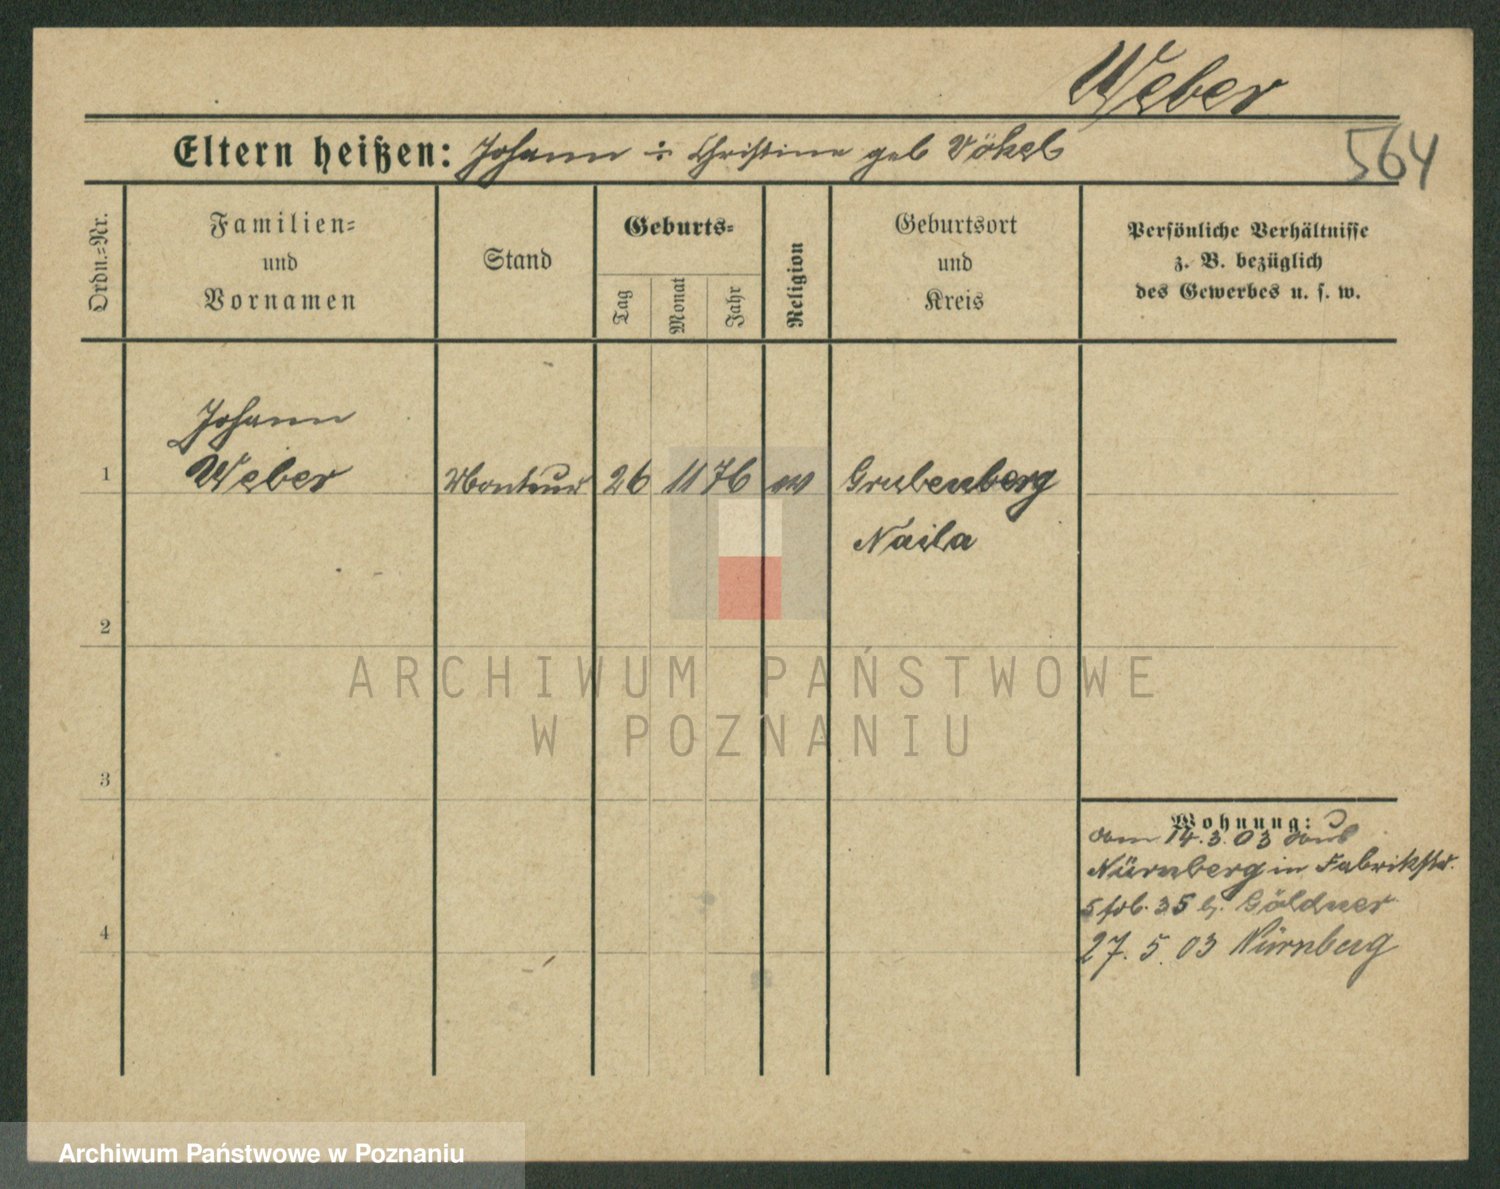 Weber
Eltern heißen: Johann u Christine geb Vökel
564
Ordn.=Nr.
Familien=
und
Vornamen
Stand
Geburts=
Tag
Monat
Jahr
Religion
Geburtsort
und
Kreis
Persönliche Verhältnisse
z. B. bezüglich
des Gewerbes u. s. w.
Johann
1 Weber Monteur 26 11 76 ev Grubenberg
Naila
2
ARCHIWUM PAŃSTWOWE
W POZNANIU
3
Wohnung:
vom 14.3.03 aus
Nürnberg in Fabrikstr.
35 b. Göldner
4
27. 5. 03 Nürnberg
Archiwum Państwowe w Poznaniu